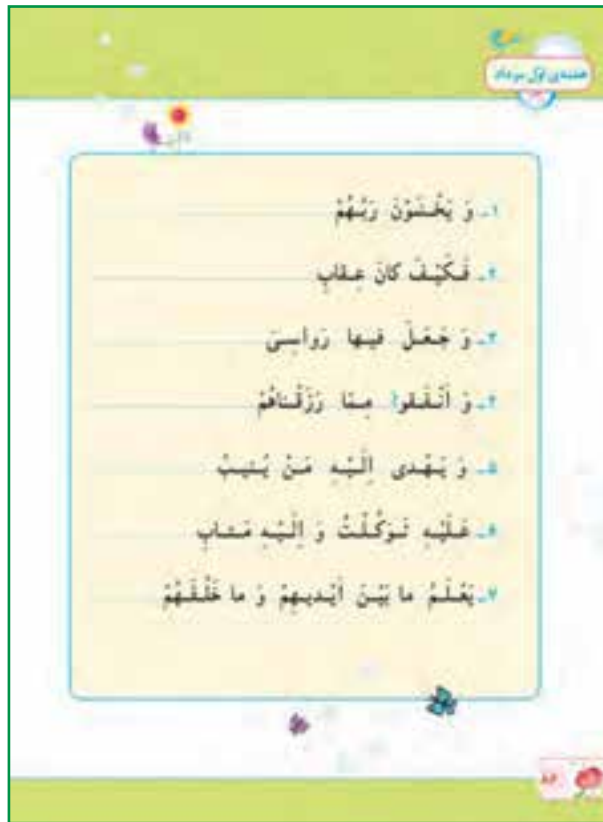 هفته‌ی اوّل مرداد
۱ـ وَ یَخْشَوْنَ رَبَّهُمْ
۲ـ فَکَیْفَ کانَ عِقابِ
۳ـ وَ جَعَلَ فیها رَواسِیَ
۴ـ وَ أَنْفَقوا مِمّا رَزَقْناهُمْ
۵ـ وَ یَهْدی اِلَیْهِ مَنْ یُنیبُ
۶ـ عَلَیْهِ تَوَکَّلْتُ وَ اِلَیْهِ مَتابِ
۷ـ یَعْلَمُ ما بَیْنَ أَیْدیهِمْ وَ ما خَلْفَهُمْ